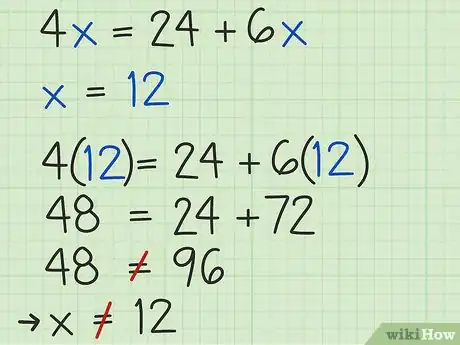 4x = 24 + 6x
x = 12
4(12) = 24 + 6(12)
48 = 24 + 72
48 ≠ 96
→ x ≠ 12
wikiHow